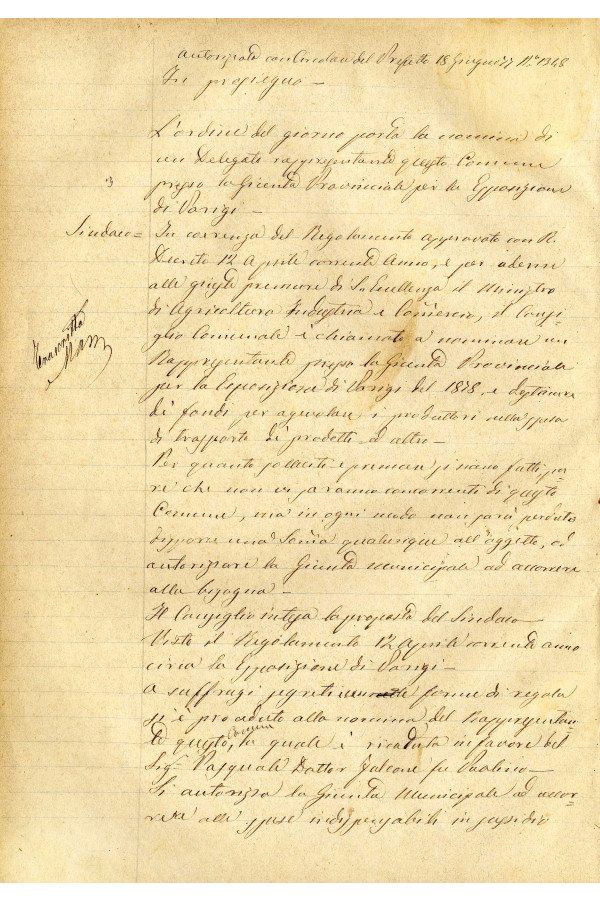 autorizzata con Circolare del Prefetto 18 Giugno 77 N.° 1348
In prosieguo —
L'ordine del giorno porta la nomina di
un Delegato rappresentante questo Comune
3
presso la Giunta Provinciale per la Esposizione
di Parigi —
Sindaco =
In correnza del Regolamento approvato con R.
Decreto 12 Aprile corrente Anno, e per aderire
alle giuste premure di Su Eccellenza il Ministro
di Agricoltura Industria e Comercio, il Consi-
glio Comunale è chiamato a nominare un
Rappresentante presso la Giunta Provinciale
per la Esposizione di Parigi del 1878, e destinare
dè fondi per agevolare i produttori nella spesa
di trasporto dè prodotti ed altro —
Per quanto solleciti e premure si siano fatti, pa-
re che non vi saranno concorrenti di questo
Comune, ma in ogni modo non sarà perduto
disporre una Soma qualunque all'oggetto, ed
autorizzare la Giunta Municipale ad accorrere
alla bisogna —
Il Consiglio intesa la proposta del Sindaco —
Visto il Regolamento 12 Aprile corrente anno
circa la Esposizione di Parigi —
A suffragi segreti forme di regola
si è proceduto alla nomina del Rappresentan-
te questo Comune, la quale è ricaduta in favore del
Sig.r Pasquale Dottor Falcone fu Paolino —
Si autorizza la Giunta Municipale ad accor-
rere alle spese indispensabili in sussidio